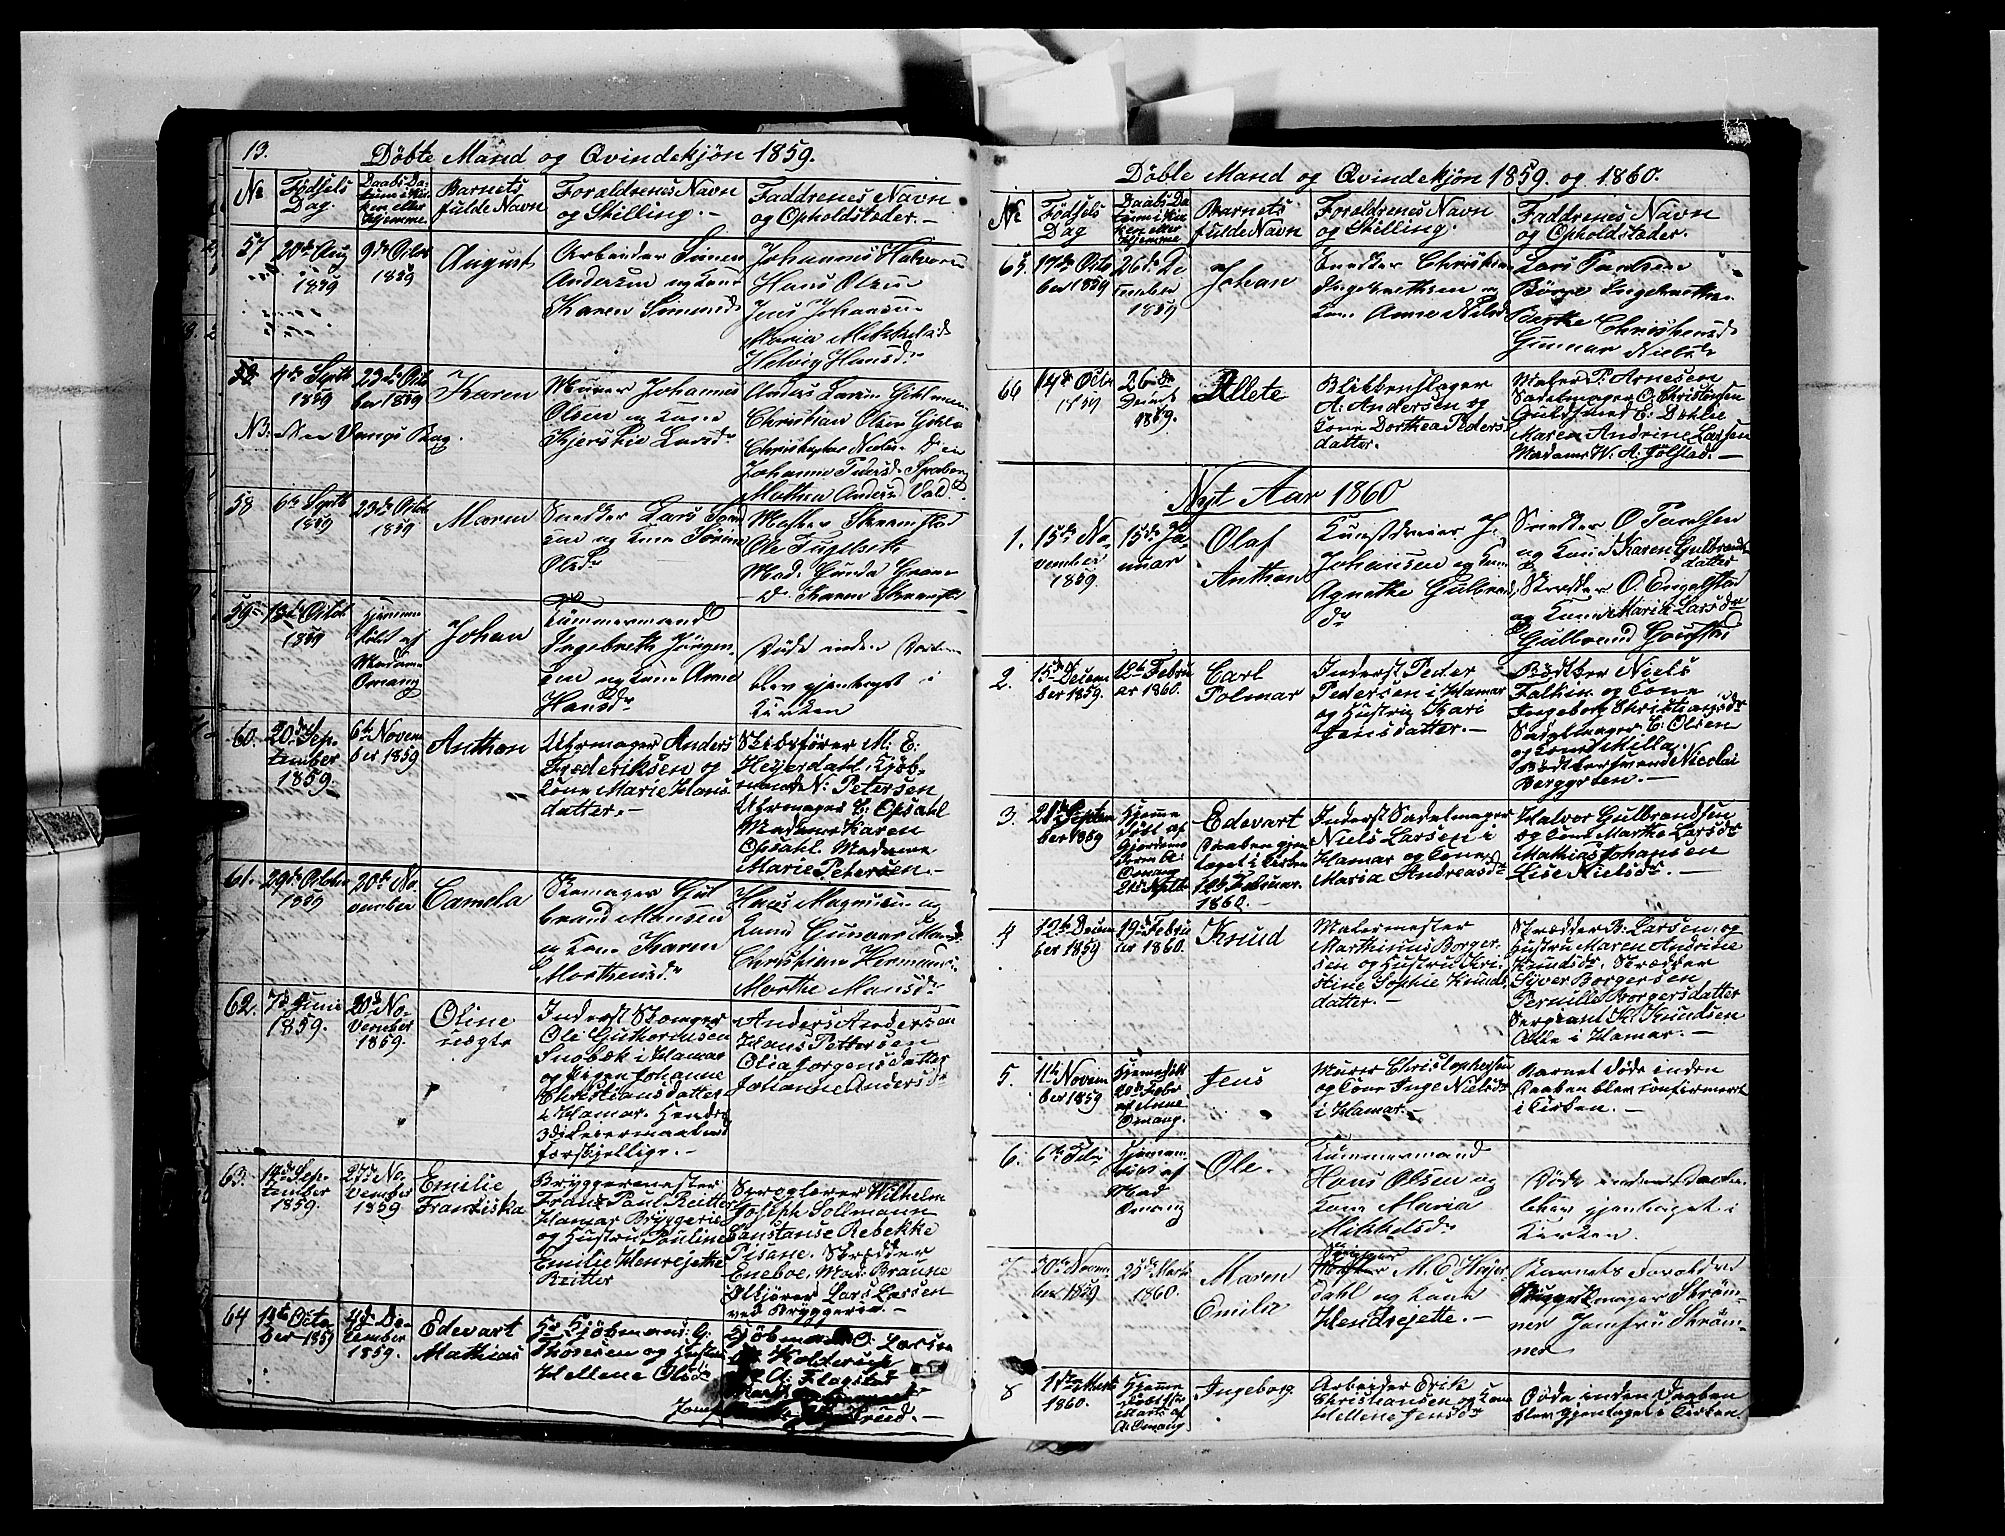 13.
Döbte Mand og Qvindekjön 1859.
No
Födsels
Dag.
Daabs Da-
tum i Kir-
ken eller
Hjemme.
Barnets
fulde Navn
Foraldrenes Navn
og Stilling.-
Faddrenes Navn
og Opholdstæder.-
57
20de Aug
1859
9de Octob
1859
August
Arbeider Simen
Andersen og Kone
Karen Simensd
Johannes Halvors
Hans Olsen
Jens Johansen
Maria Mikkelsd
Helvig Hansdr
58
4de Septb
1859
23de Octo
ber 1859
Karen
Murer Johannes
Olsen og Kone
Kjerstie Larsdr
Anders Larsen
Christian Olsen
Johanne Pedersd.
Mathea Andersd
58
6te Septb
1859
23de Octob
1859
Maren
Snedker Lars
og Kone
Olsdr
Ole Fugelseth
Mad. Gunda
59
13de Octob
1859
Hjemme
döbt af
Madam
Omang
Johan
Tömmermand
Ingebreth Jörgen-
sen og Kone Anne
Hansdr
Döde inden Daaben
blev gjentaget i
Kirken
60.
20de Sep-
tember
1859
6te Novem
ber 1859
Anthon
Uhrmager Anders
Frederiksen og
Kone Marie Hans
datter.-
Skibsförer M. E.
Heyerdahl. Kjöb-
mand N. Petersen
Uhrmager C. Opsahl
Madame Karen
Opsahl. Madame
Marie Petersen.-
61.
29de October
1859
20de No-
vember
Camola
Skomager Gul
brand Monsen
og Kone Karen
Mortensdr
Hans Magnusen og
Kone Gunvor
Christian Hermans
Marthe Monsdr
62.
7de Junie
1859.
20de No-
vember
1859.
Oline
uægte
Inderst Skomger
Ole Guthormsen
Snobæk i Hamar
og Pigen Johanne
Christiansdatter
i Hamar. Hendes
3die Leiermaal med
forskjellige.-
Anders Andersen
Hans Pettersen
Olia Jorgensdatter
Johanne Andersdr
63.
14de Sep-
tember
1859.
27de No-
vember
1859
Emilie
Franciska
Bryggermester
Frans Paul Reitter
Hamar Bryggerie
og Hustru Pauline
Emilie Henrejette
Reitter
Wilhelm
Joseph Sollmann
Constanse Rebekke
Pisane. Skrædder
Eneboe. Mad. Braune
Ölkjörer Lars Larsen
ved Bryggerie.-
64
13de Octo-
ber 1859
4de De-
cember
1859.
Edevart
Mathias
Hr Kjöbmand G.
Thoresen og Hustru
Hellene Olsdr
Kjöbmand O. Larsen
A. Flagstad
Döbte Mand og Qvindekjön 1859. og 1860.
No
Födsels
Dag
Daabs Da-
tum i Kir
ken eller
Hjemme
Barnets
fulde Navn
Foraldrenes Navn
og Stilling.
Faddrenes Navn
og Opholdstæder.
65.
17de Octo
ber 1859
26de De
cember
1859
Johan
Snedker Christian
Ingebrethsen og
Kone Anne Nilsd
Lars Paulsen
Börge Ingebrethsen
Berthe Christensd
Gunnar Nielsdr
66
14de Octb
1859
26de
Decemb
1859.
Allete
Blikkenslager
A. Andersen og
Kone Dorthea Peders
datter.
Maler P. Arnesen
Sadelmager O. Christensen
Guldsmed E. Döhlie
Maren Andrine Larsen
Madame W. A. Jölstad.-
Nyt Aar 1860
1.
15de No-
vember
1859.
15de Ja-
nuar
Olaf
Anthon
Kunstdreier J.
Johansen og Kone
Agnethe Gulbrand
dr
Snedker O. Paulsen
og Kone Karen Gulbrands
datter
Skrædder O. Engelstad
og Kone Marih Larsdr
Gulbrand
2.
15de Decem
ber 1859.
12te Febru
ar 1860.
Carl
Polmar
Inderst Peder
Pedersen i Hamar
og Hustru Kari
Jensdatter.-
Bödtker Niels
Falkin og Cone
Ingeborg Christiansdr
Sadelmager C. Olsen
og Cone Milla
Bödkersvend Nicolai
Berggrten.-
3.
21de Septem
ber 1859
Hjemme
döbt af
Gjordemo
deren A.
Omang
21de Septb
Edevart
Daaben gjen
taget i Kirken
12te Februar.
1860.-
Inderst Sadelmager
Niels Larsen i
Hamar og Cone
Maria Andreasdr
Halvor Gulbrandsen
og Cone Marthe Larsdr
Mathias Johansen
Lise Nielsdr.-
4
12te Decem
ber 1859
19de Febru
ar 1860.
Knud
Malermester
Marthinus Borger-
sen og Hustru Kri
stine Sophie Knuds
datter.-
Skrædder B. Larsen. og
Hustru Maren Andrine
Knudsdr. Skrædder
Syver Borgersen
Pernille Borgersdatter
Sergiant K. Knudsen
Alle i Hamar.-
5.
11te Novem
ber 1859
Hjemedöbt
20de Feber
af Anne
Omang.
Jens
Murer Christophersen
og Cone Inge Nielsdr
i Hamar.-
Barnet döde inden
Daaben blev confirmeret
i Kirken.-
6.
6te Febr
Hjemme-
döbt af
Mad
Omang
Ole.
Tömmermand
Hans Olsen og
Kone Maria
Mikkelsdr
Döde inden Daaben
blev gjentaget i
Kirken.
7
20de Novem-
ber 1859
25de Marts
1860.
Maren
Emilie
M. E. Heyer-
dahl og Kone
Hendrejette.
Barnets Forældre
Buggetmager Ström-
ner Jomfru Ström-
ner
8
1ste Marts
1860.
Hjemme
döbt
Marts af
A. Omang
Ingeborg
Arbeider Erik
Christiansen og Kone
Hellene Jensdr
Döde inden Daaben
blev gjentaget i Kirken